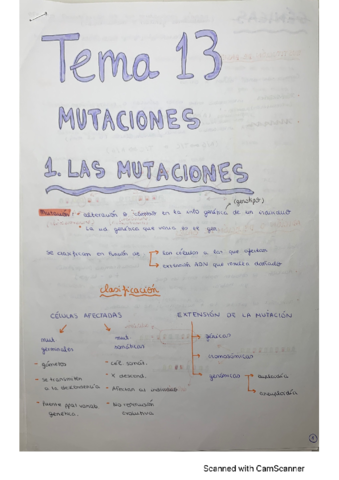 Tema 13
MUTACIONES
1. LAS MUTACIONES
(genotipo)
Mutación: alteración o cambio en la info genética de un individuo
La ud genética que muta es el gen.
Se clasifican en función de
las células a las que afectan
extensión ADN que resulta dañado
clasificación
CÉLULAS AFECTADAS
mut germinales
- gámetos
- se transmiten a la descendencia
- fuente genética.
mut somáticas
- cél. somát.
- X descend.
- Afectan al individuo
- No repercusión evolutiva
EXTENSIÓN DE LA MUTACIÓN
génicas
cromosómicas
genómicas
euploidía
aneuploidía
Scanned with CamScanner